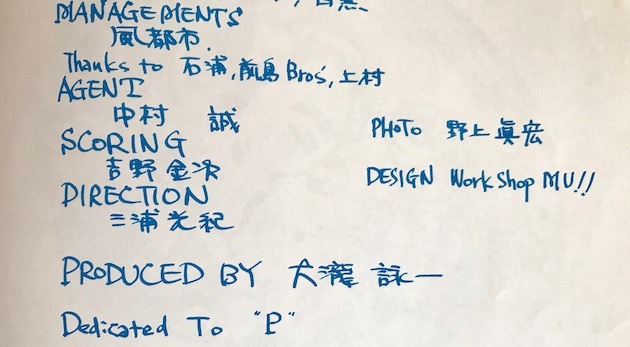 MANAGEMENTS
風都市
Thanks to 石浦, 前島 Bros', 上村
AGENT
中村 誠
SCORING
吉野金次
DIRECTION
三浦光紀
PHOTO 野上眞宏
DESIGN WorkShop MU!!
PRODUCED BY 大瀧詠一
Dedicated To "P"